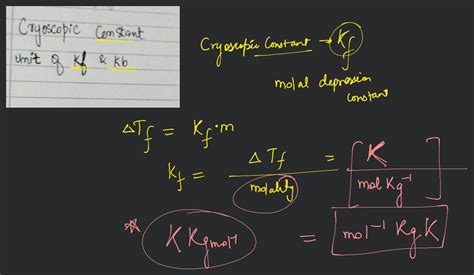 Cryoscopic Constant
unit of Kf & Kb
Cryoscopic Constant → Kf
molal depression
constant
ΔTf = Kf·m
Kf = ΔTf / molality = [K / mol Kg⁻¹]
K Kg mol⁻¹ = mol⁻¹ Kg K